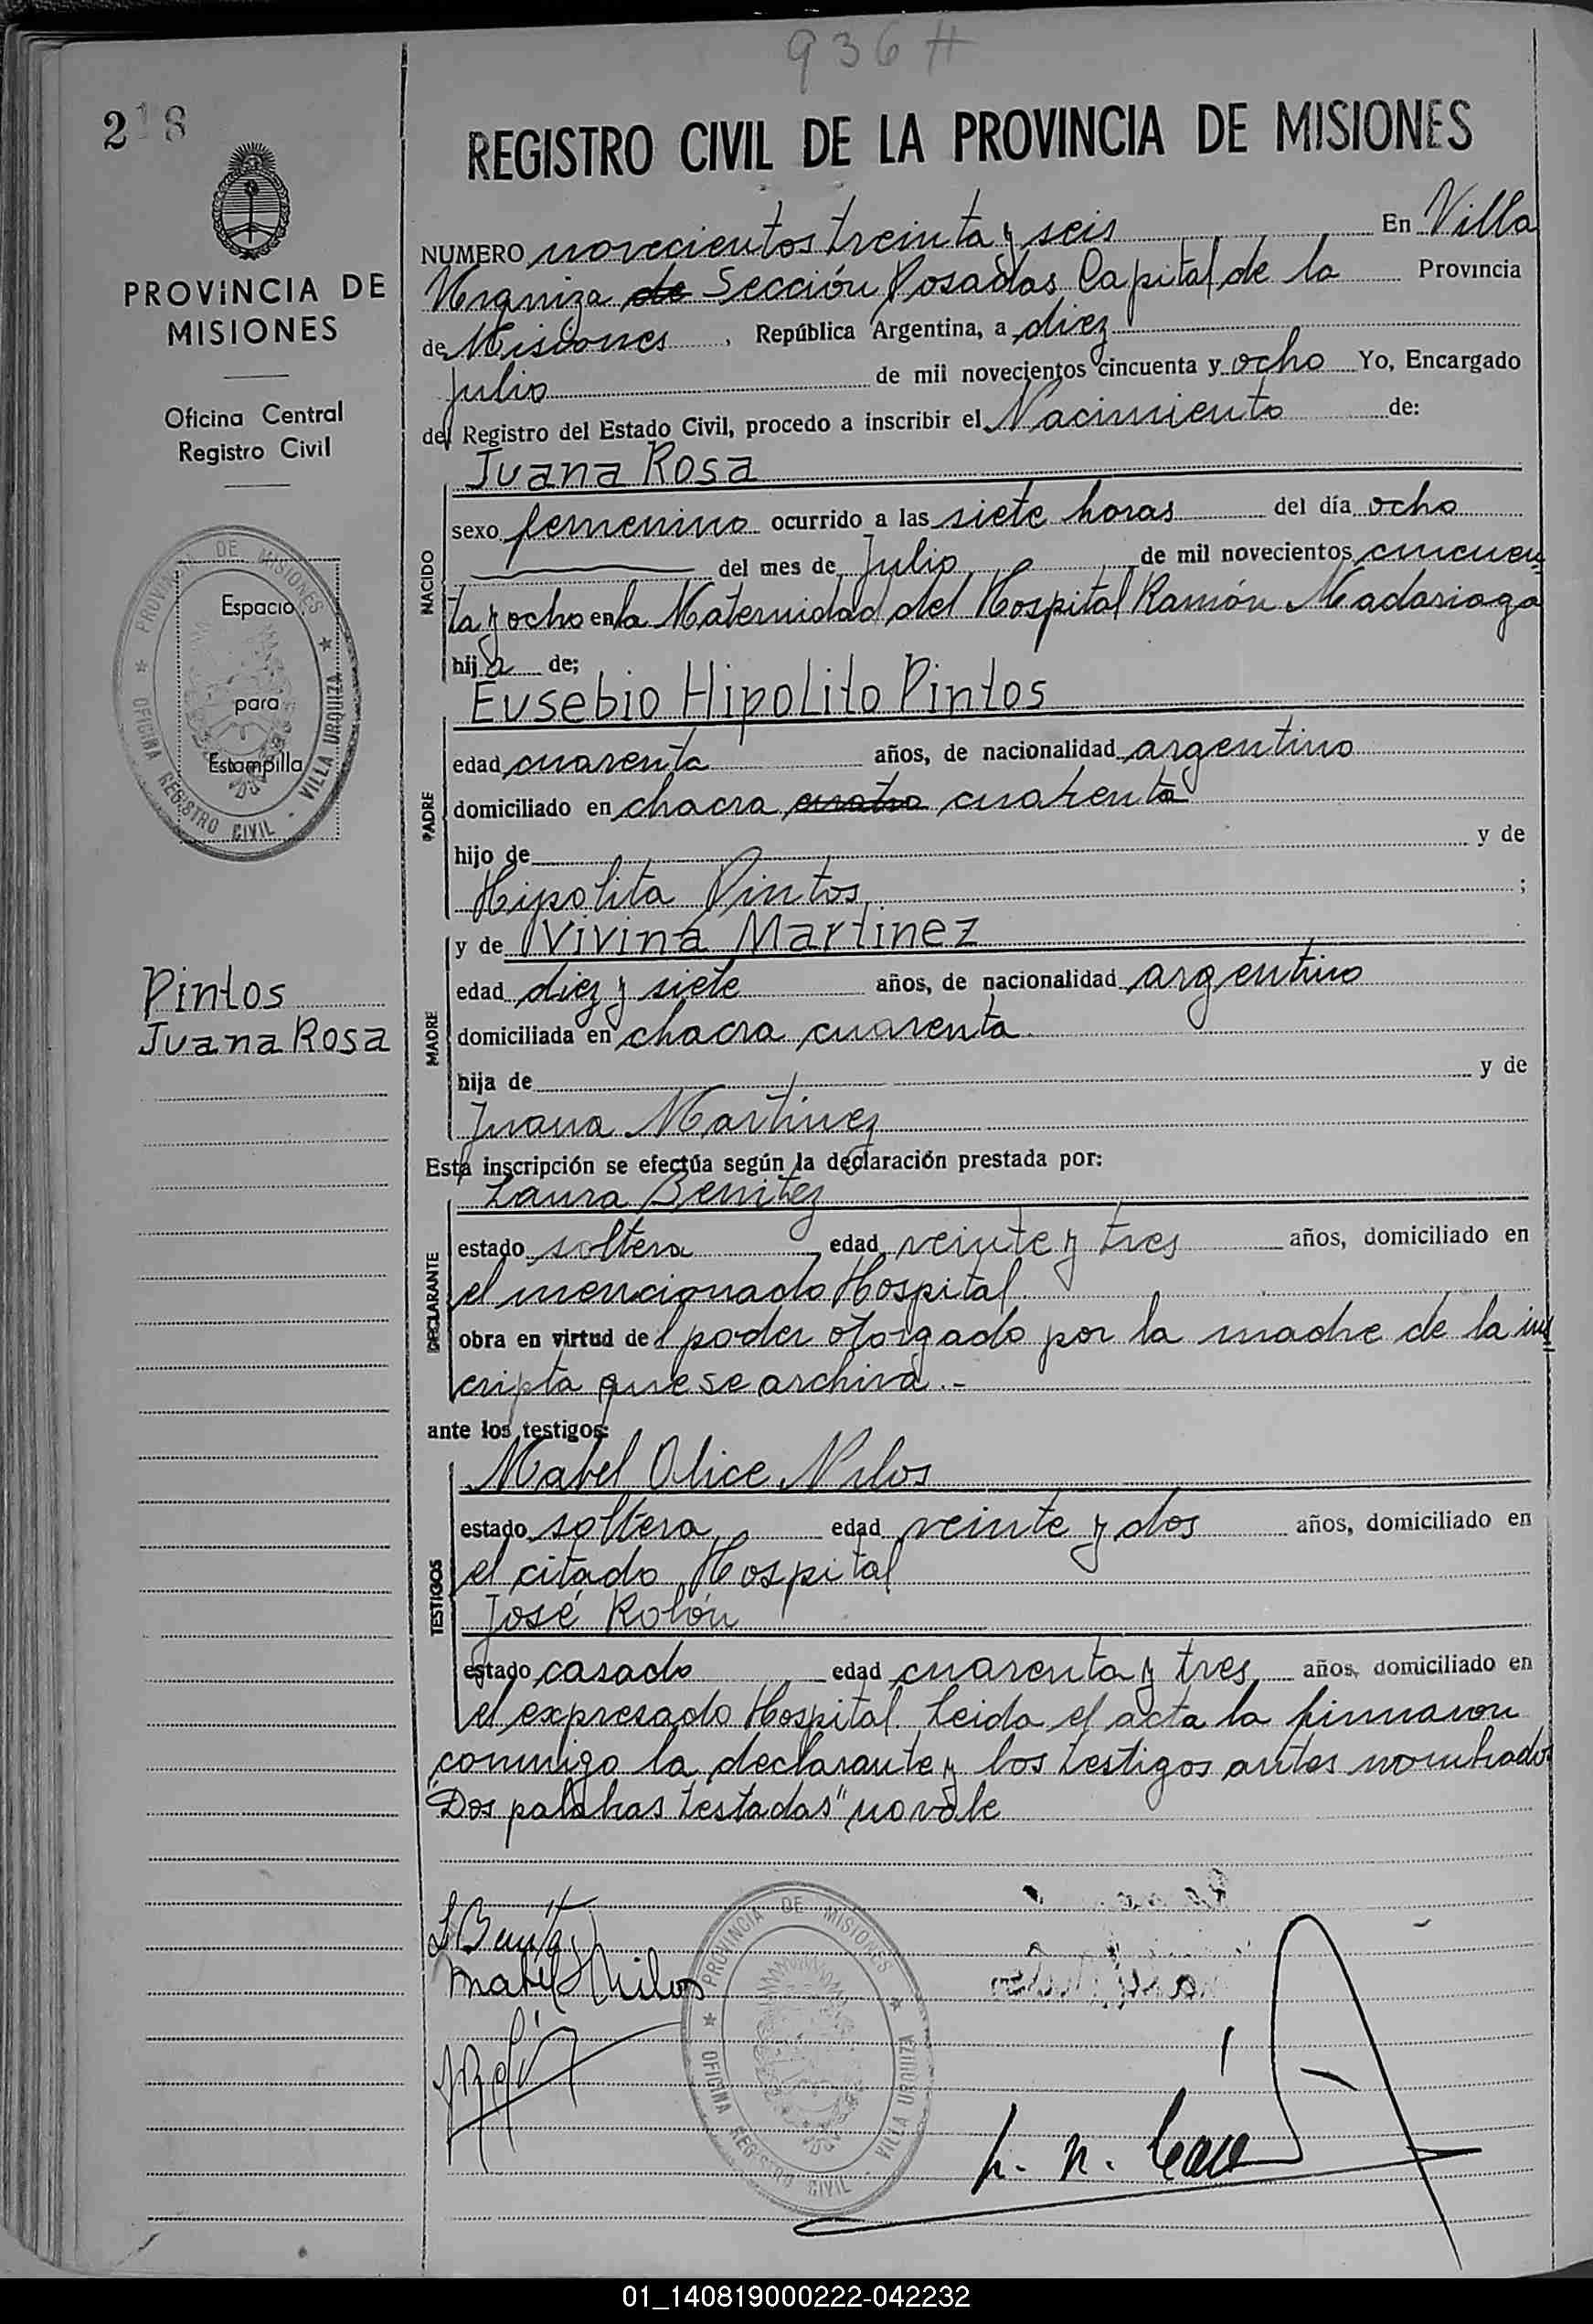 936 H
218
REGISTRO CIVIL DE LA PROVINCIA DE MISIONES
PROVINCIA DE
MISIONES
Oficina Central
Registro Civil
PROVINCIA DE MISIONES
OFICINA REGISTRO CIVIL - VILLA URQUIZA
Espacio
para
Estampilla
Pintos
Juana Rosa
NUMERO novecientos treinta y seis En Villa
Urquiza de Sección Posadas Capital de la Provincia
de Misiones, República Argentina, a diez
Julio de mil novecientos cincuenta y ocho Yo, Encargado
del Registro del Estado Civil, procedo a inscribir el Nacimiento de:
Juana Rosa
NACIDO
sexo femenino ocurrido a las siete horas del día ocho
del mes de Julio de mil novecientos cincuen
ta y ocho en la Maternidad del Hospital Ramón Madariaga
hija de;
Eusebio Hipolito Pintos
PADRE
edad cuarenta años, de nacionalidad argentino
domiciliado en chacra cuatro cuarenta
hijo de y de
Hipolita Pintos ;
y de Vivina Martinez
MADRE
edad diez y siete años, de nacionalidad argentino
domiciliada en chacra cuarenta
hija de y de
Juana Martinez
Esta inscripción se efectúa según la declaración prestada por:
Laura Benitez
DECLARANTE
estado soltera edad veinte y tres años, domiciliado en
el mencionado Hospital
obra en virtud del poder otorgado por la madre de la ins
cripta que se archiva.-
ante los testigos:
Mabel Alice Milos
TESTIGOS
estado soltera edad veinte y dos años, domiciliado en
el citado Hospital
José Rolón
estado casado edad cuarenta y tres años, domiciliado en
el expresado Hospital. Leida el acta la firmaron
conmigo la declarante y los testigos antes nombrados
"Dos palabras testadas" no vale
L Benitez
Mabel Milos
PROVINCIA DE MISIONES
OFICINA REGISTRO CIVIL - VILLA URQUIZA
01_140819000222-042232